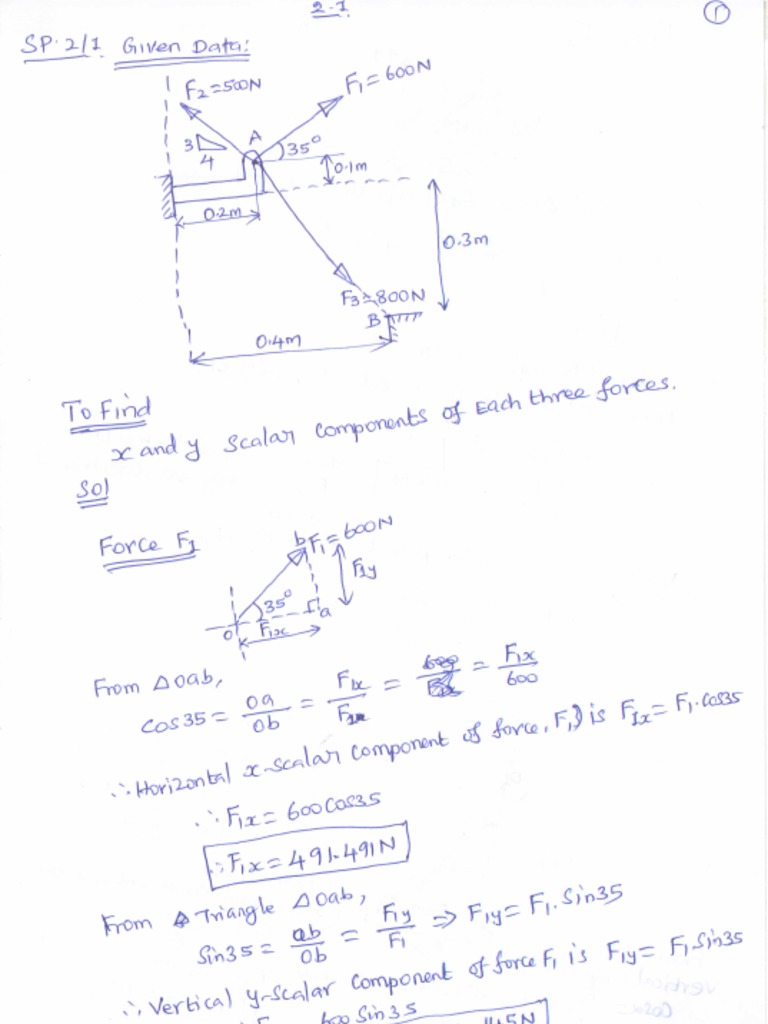 2.1
1
SP. 2/1 Given Data:
F2=500N
F1=600N
A
3
4
35°
0.1m
0.2m
0.3m
F3=800N
B
0.4m
To Find
x and y scalar components of Each three forces.
Sol
Force F1
b F1=600N
F1y
35°
a
o
F1x
From △oab,
cos35 = oa/ob = F1x/ = = F1x/600
∴ Horizontal x-scalar component of force, F1) is F1x = F1.cos35
∴ F1x = 600cos35
∴ F1x = 491.491N
From Triangle △oab,
Sin35 = ab/ob = F1y/F1 ⇒ F1y = F1.Sin35
∴ Vertical y-scalar component of force F1 is F1y = F1 Sin35
600 Sin35